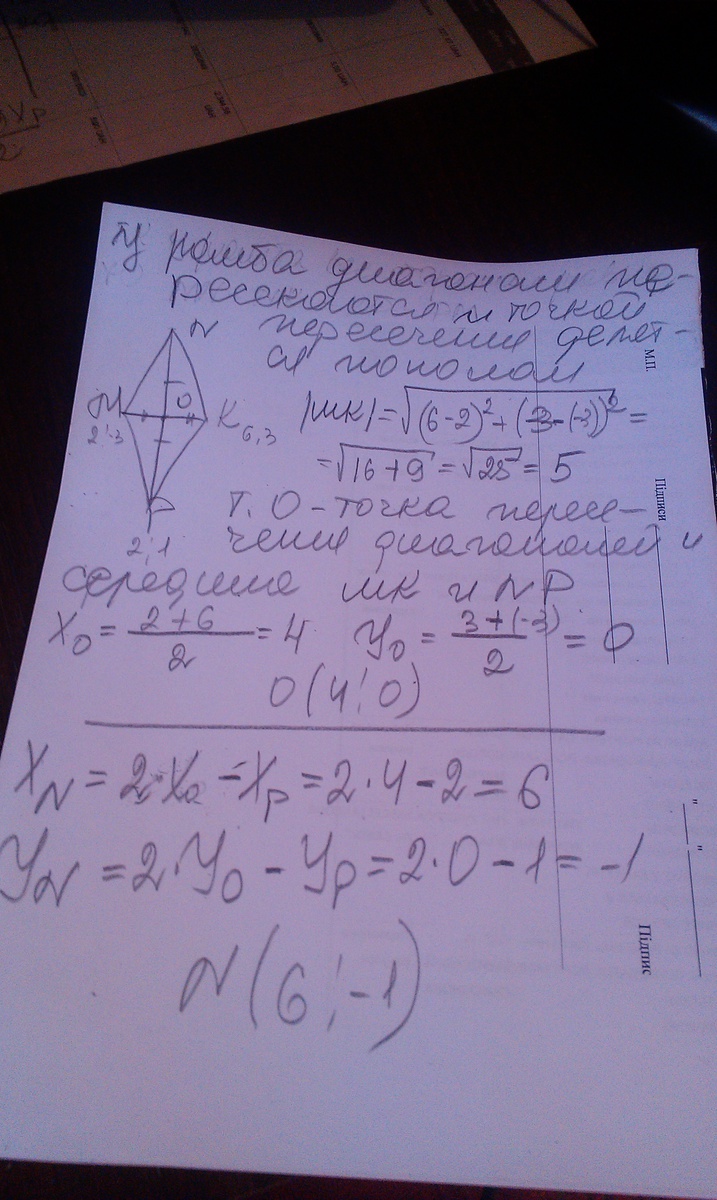 У ромба диагонали пе-
ресекаются и точкой
пересечения делят-
ся пополам
N
M
2;-3
O
K 6,3
P
2;1
|MK|=√(6-2)²+(3-(-3))² =
=√16+9=√25=5
т. О-точка пересе-
чения диагоналей и
середина MK и NP
X₀= 2+6 / 2 =4 У₀ = 3+(-3) / 2 = 0
O(4;0)
X_N = 2·X₀ -X_P =2·4-2=6
У_N =2·У₀ - У_P=2·0-1=-1
N(6;-1)
М.П.
Підписи
" "
Підпис